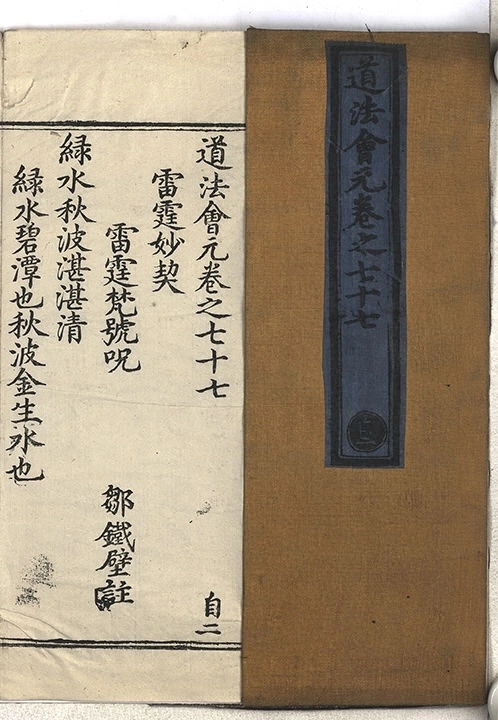 道法會元卷之七十七
自二
道法會元卷之七十七
自二
雷霆妙契
雷霆梵號呪
鄒鐵壁註
緑水秋波湛湛清
緑水碧潭也秋波金生水也